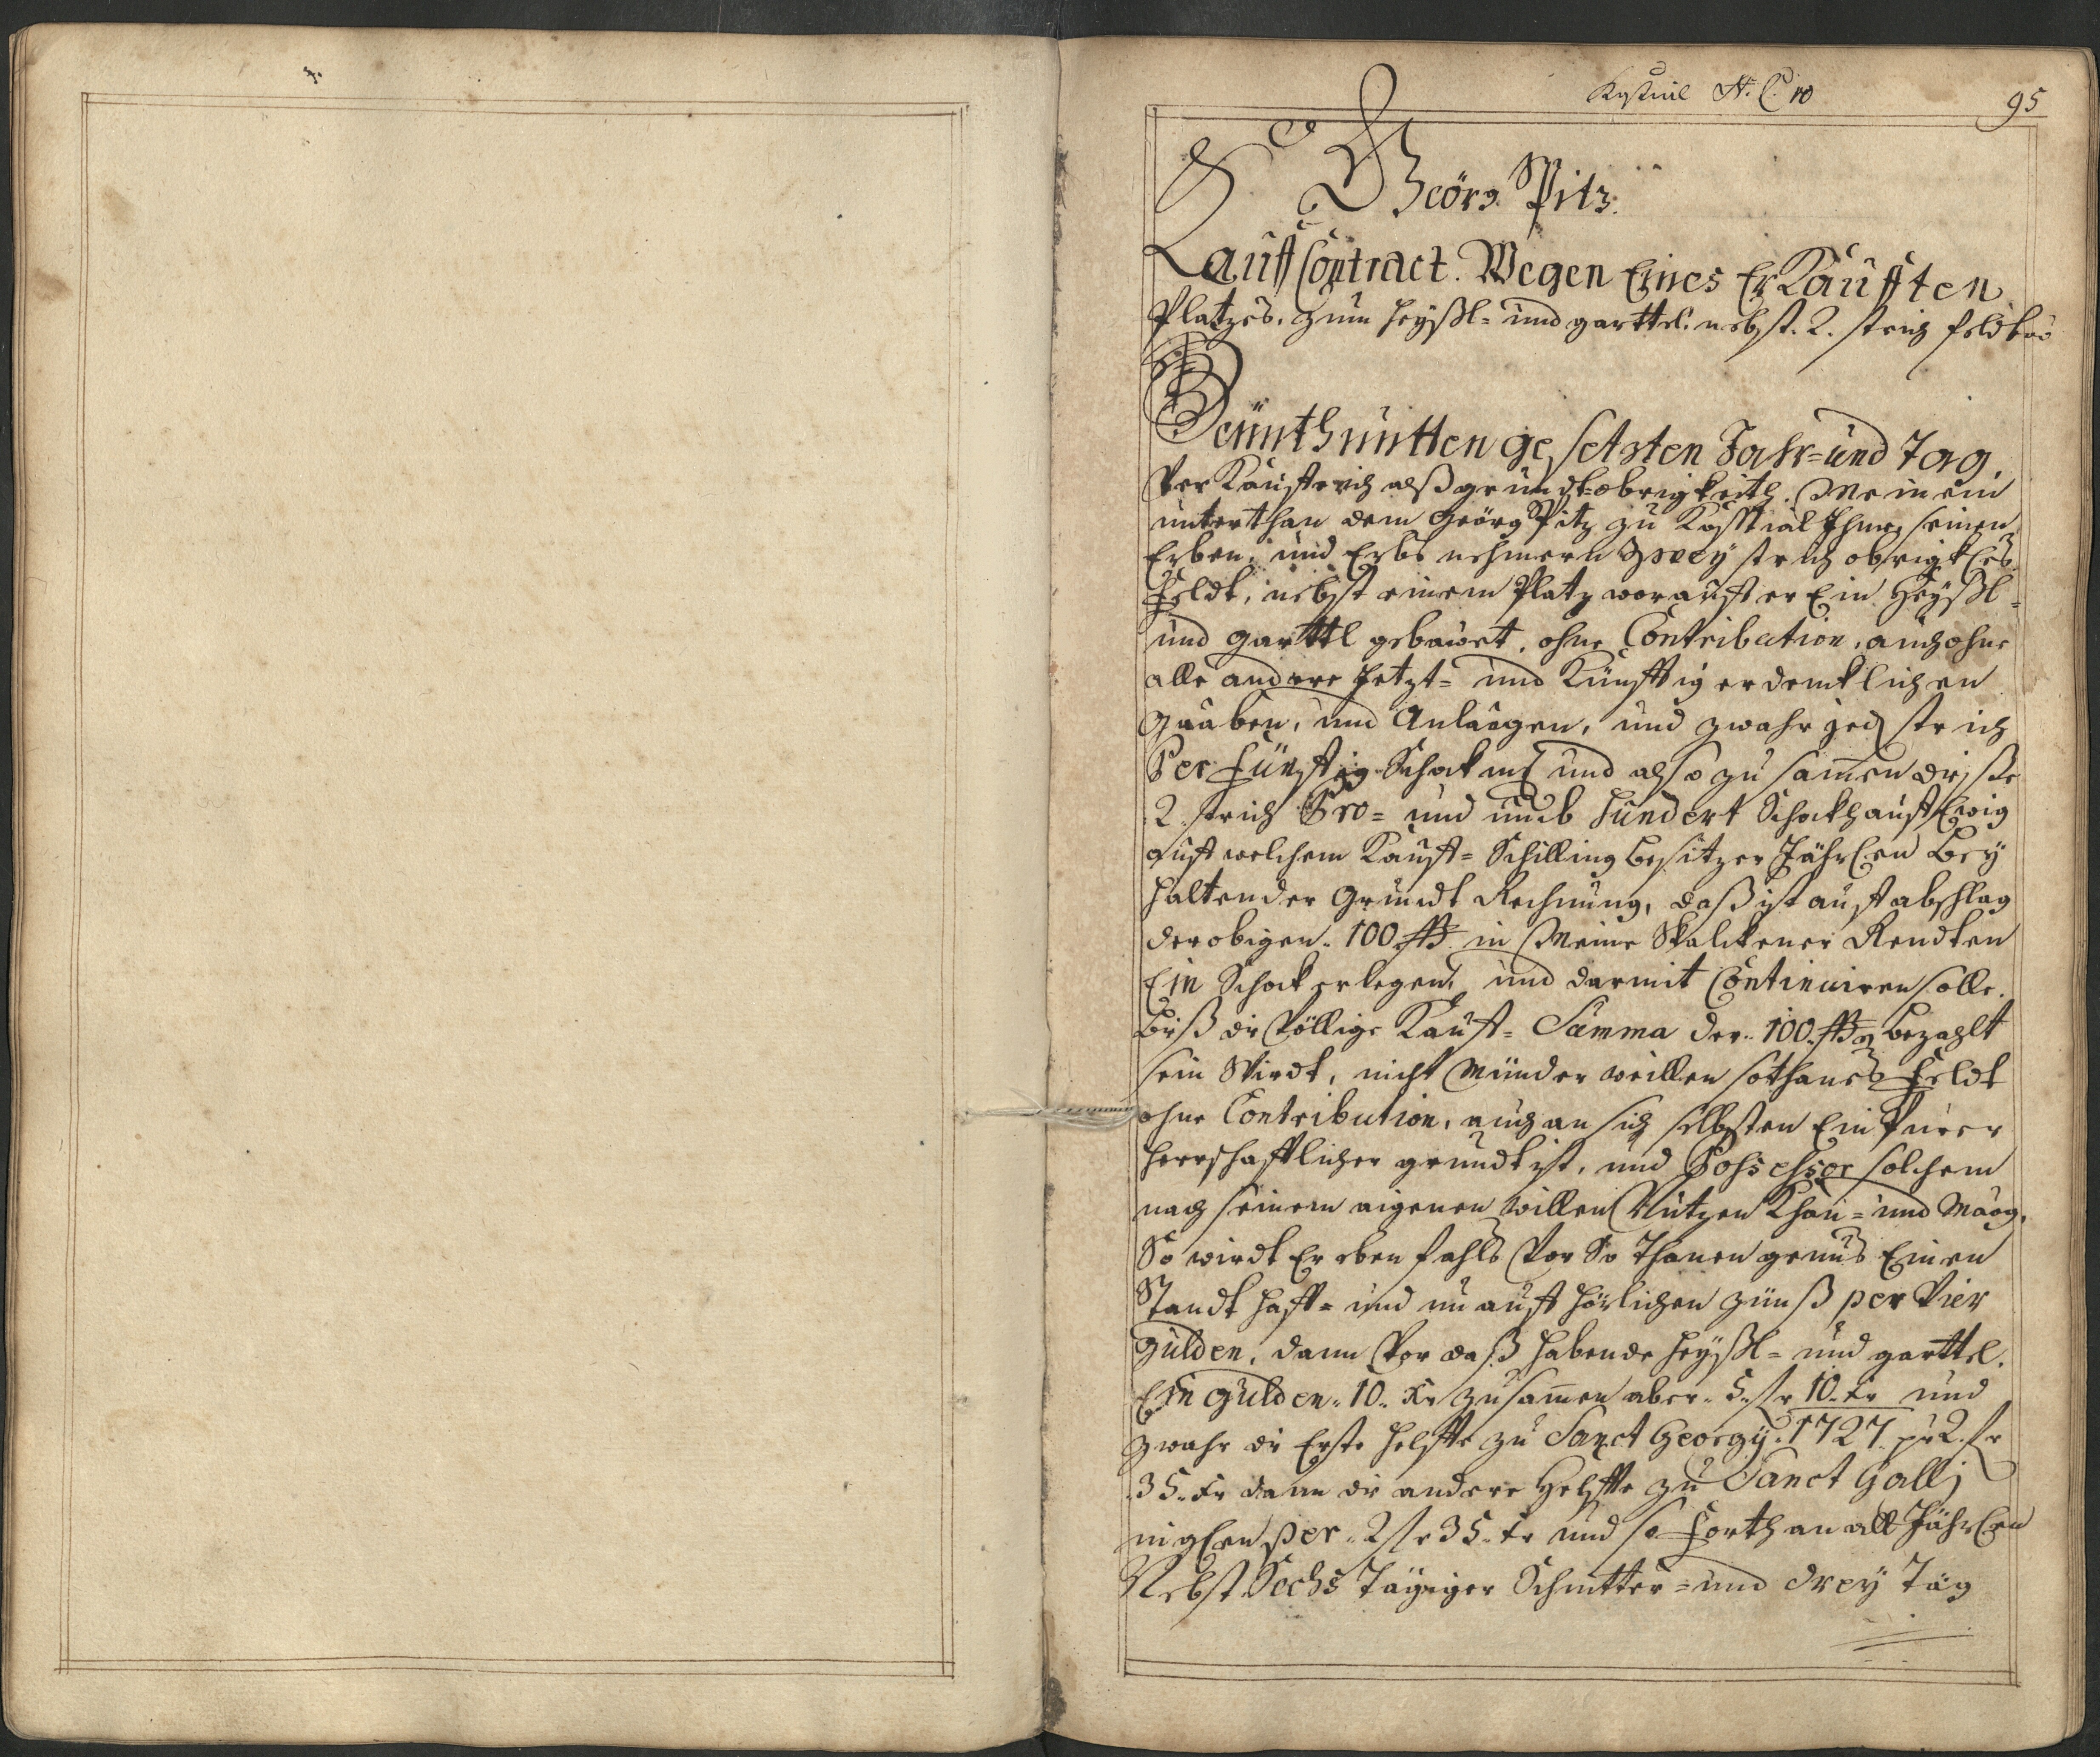 Kostiál N. C. 10
95
Geörg Pitz.
Kauff Contract. Wegen Eines Erkaufften
Platzes, zum heyßl- und garttel. nebst. 2. strich feldtes
Heünth untten gesetzten Jahr- und Tag.
Verkauffe ich alß grundt-obrigkeith. Meinem
unterthan dem Geörg Pitz zu Kosstial Ihme, seinen
Erben, und Erbsnehmern Zwey strich obrigkl:
Feldt, nebst einem Platz worauff er Ein Heyßl-
und garttl gebauet, ohne Contribution, auch ohne
alle andere Jetzt- und Künfftig erdencklichen
Gaaben, und Anlaagen, und zwahr jed strich
Per Fünfftzig Schock m und also zusammen diese
2. strich Pro- und umb hundert Schockh auff Ewig
auff welchem Kauff-Schilling besitzer Jährlen bey
haltender Grundt Rechnung, daß ist auff abschlag
der obigen. 100. ß in Meine Skalckener Rendten
Ein Schock erlegen, und darmit Continuiren solle.
biß die völlige Kauff-Summa der. 100. ß bezahlt
sein Wirdt, nicht minder weillen sothanes Feldt
ohne Contribution, auch an sich selbsten Ein Purer
herrschafftlicher grundt ist, und Possessor solchem
nach seinem aigenen willen Nutzen khan- und Maag.
So wirdt Er eben fahls Vor So Thanen genus Einen
Standthafft- und unauffhörlichen Zünß per Vier
Gulden, dann Vor daß habende heyßl- und garttel.
Ein Gulden. 10. Kr zusammen aber. 5. fr 10. Kr und
zwahr die Erste helffte zu Sanct Georgÿ. 1727. pr 2. fr
35. Kr dann die andere Helffte zu Sanct Gallj
per. 2 fr 35. Kr und so Forth an all Jährlen
Nebst Sechs Tägiger Schnitter- und dreÿ Täg